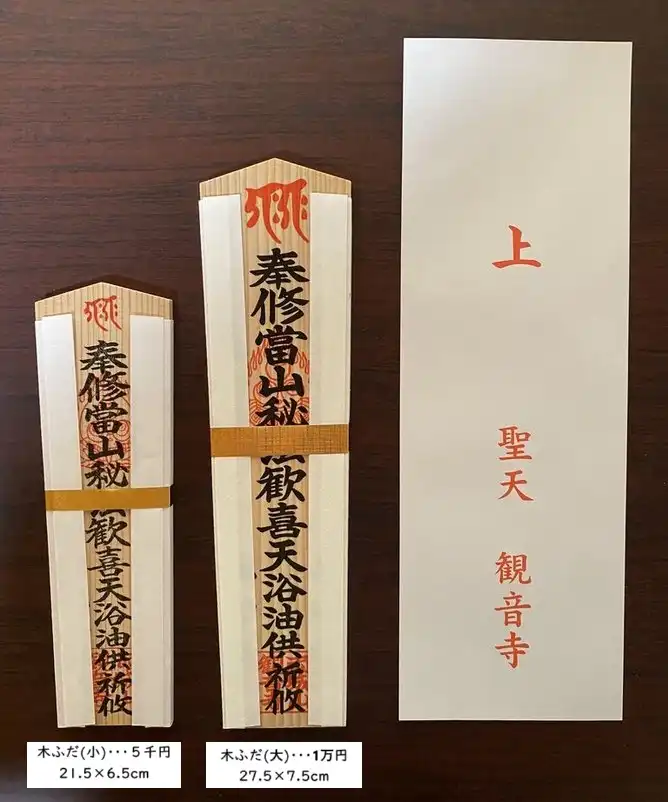 奉修當山秘法歓喜天浴油供祈攸
奉修當山秘法歓喜天浴油供祈攸
上
聖天 観音寺
木ふだ(小)･･･5千円
21.5×6.5cm
木ふだ(大)･･･1万円
27.5×7.5cm